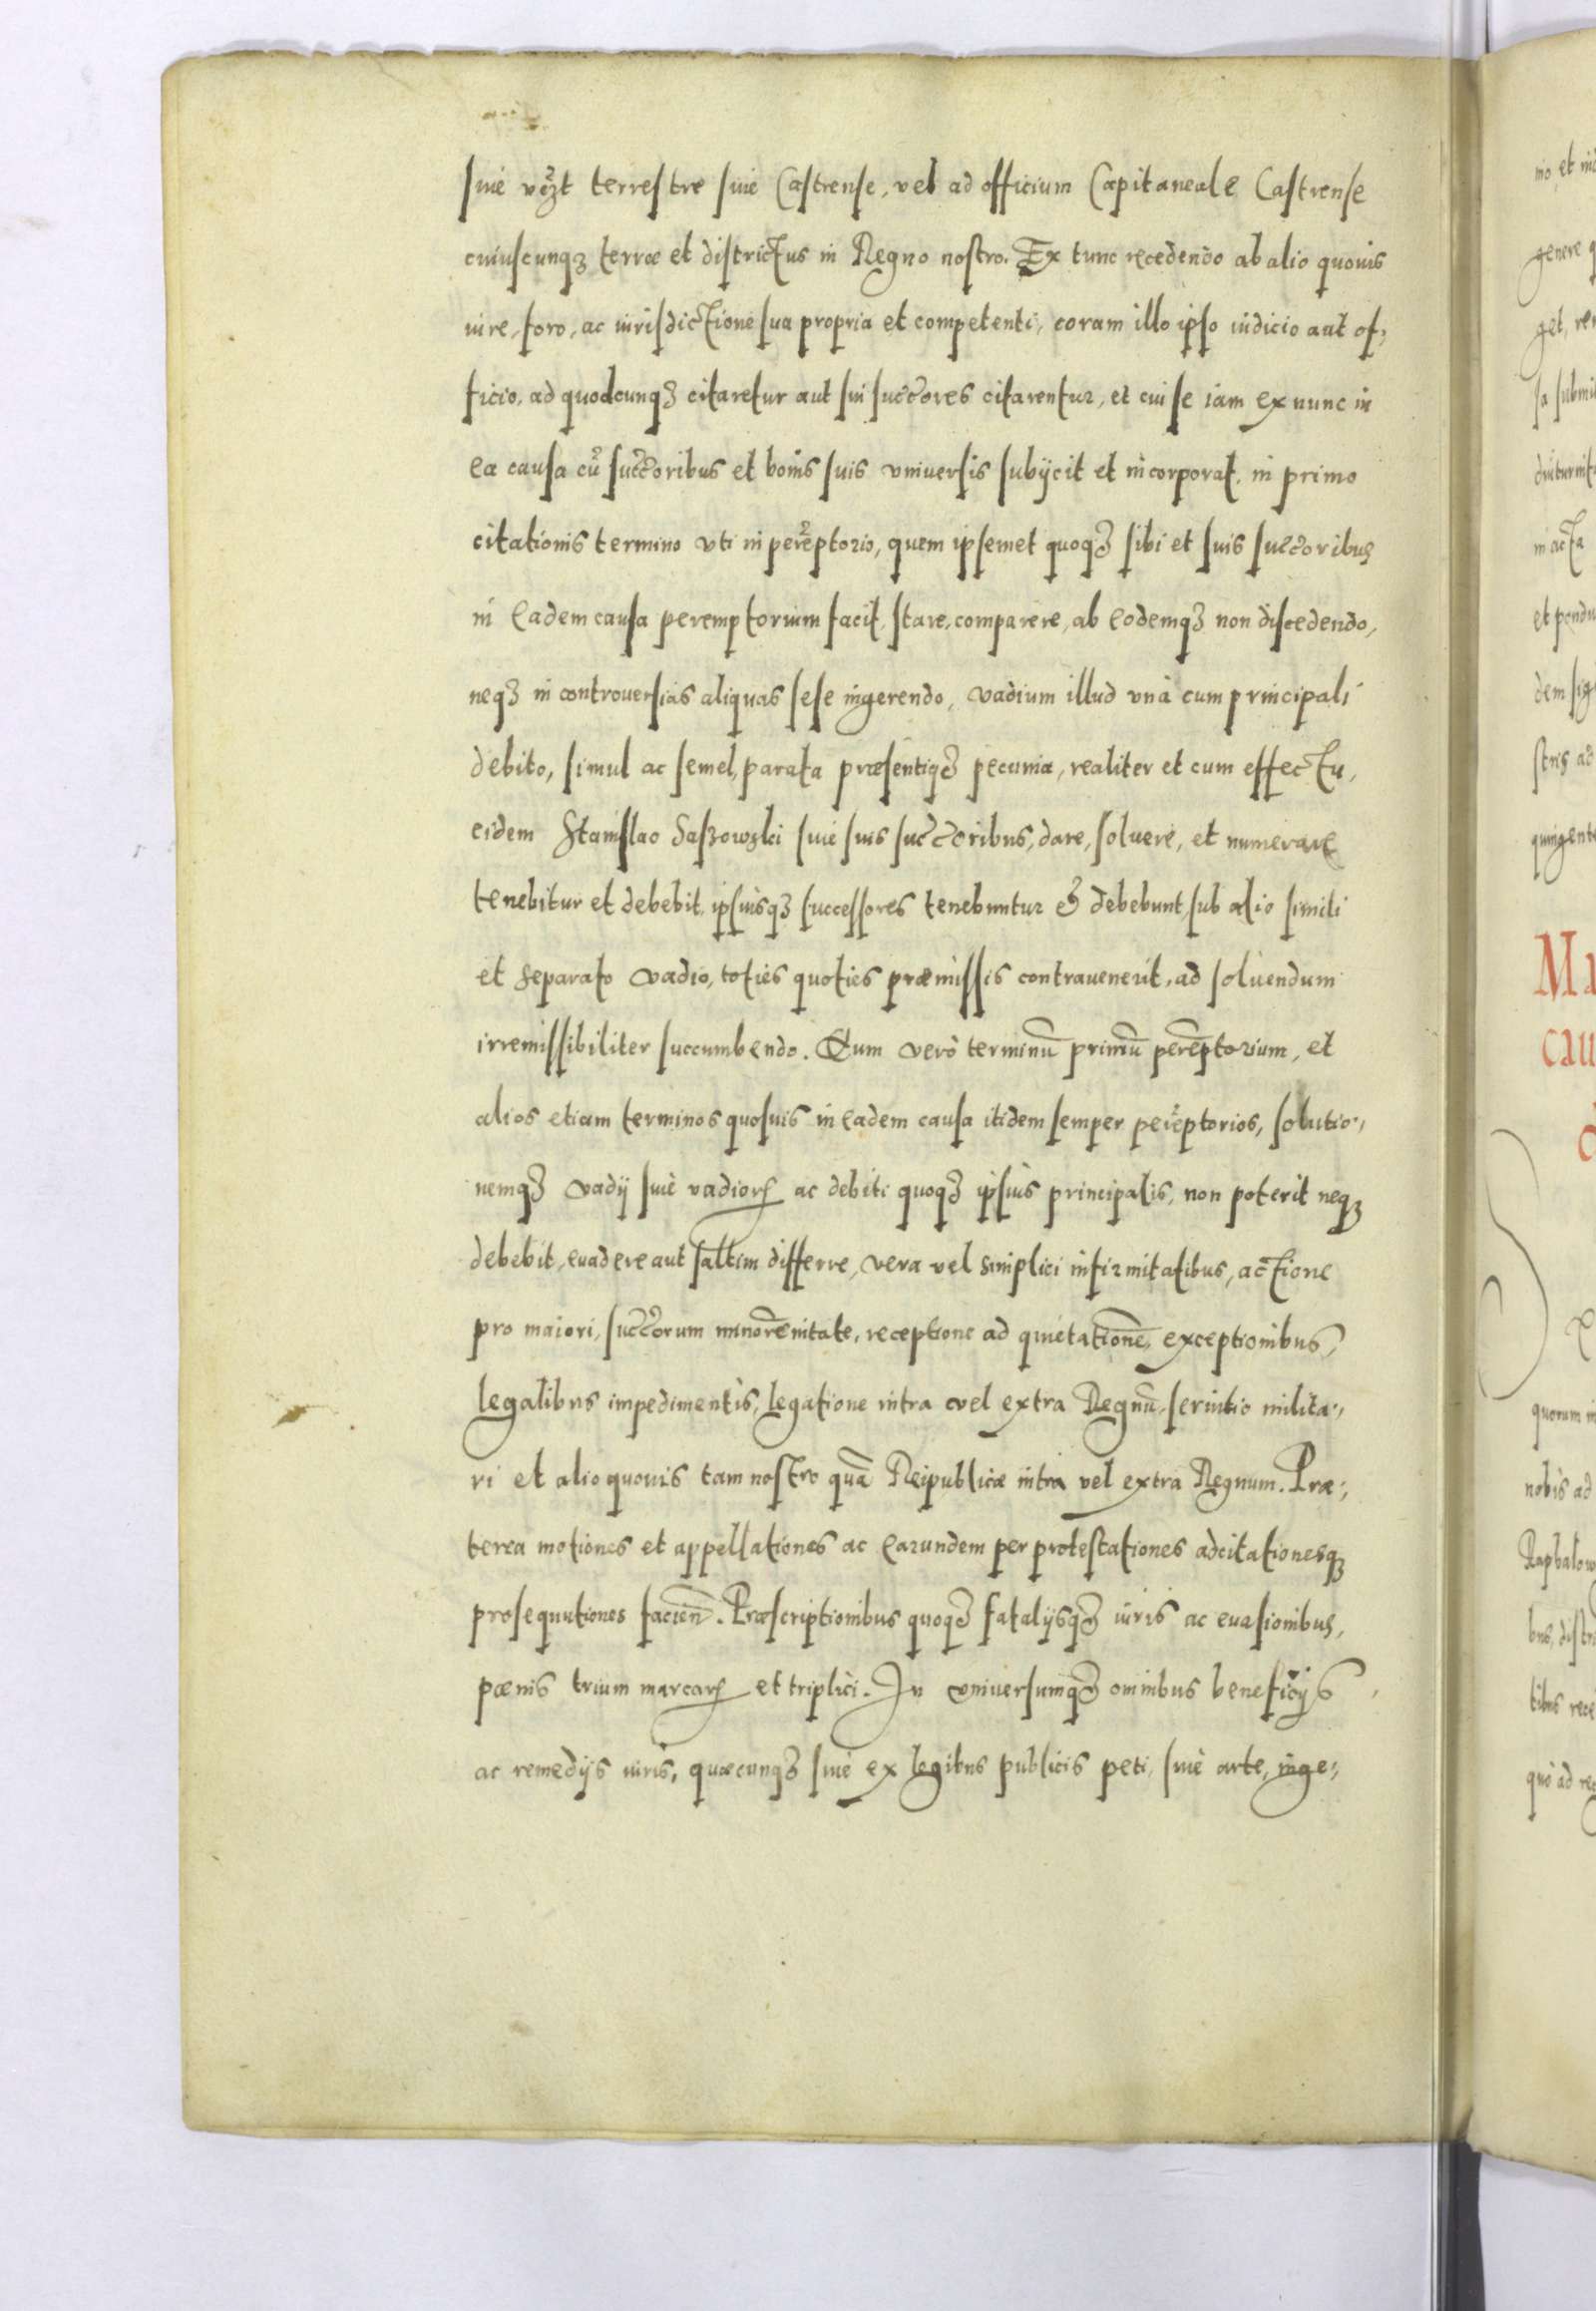 siue terrestre siue Castrense, vel ad officium Capitaneale Castrense
cuiuscunqꝫ terræ et districtus in Regno nostro. Ex tunc recedendo ab alio quouis
iure, foro, ac iurisdictione sua propria et competenti, coram illo ipso iudicio aut of,
ficio, ad quodcunqꝫ citaretur aut sui succ̃ores citarentur, et cui se iam ex nunc in
ea causa cũ succ̃oribus et bonis suis vniuersis subijcit et incorporat, in primo
citationis termino vti in perẽptorio, quem ipsemet quoqꝫ sibi et suis succ̃oribus
in eadem causa peremptorium facit, stare, comparere, ab eodemqꝫ non discedendo,
neqꝫ in controuersias aliquas sese ingerendo, vadium illud vnà cum principali
debito, simul ac semel, parata præsentiqꝫ pecunia, realiter et cum effectu,
eidem Stanislao siue suis succ̃oribus, dare, soluere, et numerare
tenebitur et debebit, ipsiusqꝫ successores tenebuntur & debebunt, sub alio simili
et separato vadio, toties quoties præmissis contrauenerit, ad soluendum
irremissibiliter succumbendo. Quem verò terminũ primũ perẽptorium, et
alios etiam terminos quosuis in eadem causa itidem semper perẽptorios, solutio,,
nemqꝫ vadij siue vadioꝝ ac debiti quoqꝫ ipsius principalis, non poterit neqꝫ
debebit, euadere aut saltim differre, vera vel simplici infirmitatibus, actione
pro maiori, succ̃orum minorẽnitate, receptione ad quietationẽ, exceptionibus,
legalibus impedimentis, legatione intra vel extra Regnũ, seruitio milita,,
ri et alio quouis tam nostro quã Reipublicæ intra vel extra Regnum. Præ,,
terea motiones et appellationes ac earundem per protestationes adcitationesqꝫ
prosequutiones facieñ. Præscriptionibus quoqꝫ fatalijsqꝫ iuris ac euasionibus,
pœnis trium marcaꝝ et triplici. In vniuersumqꝫ omnibus beneficijs
ac remedijs iuris, quæcunqꝫ siue ex legibus publicis peti, siue arte, inge,,